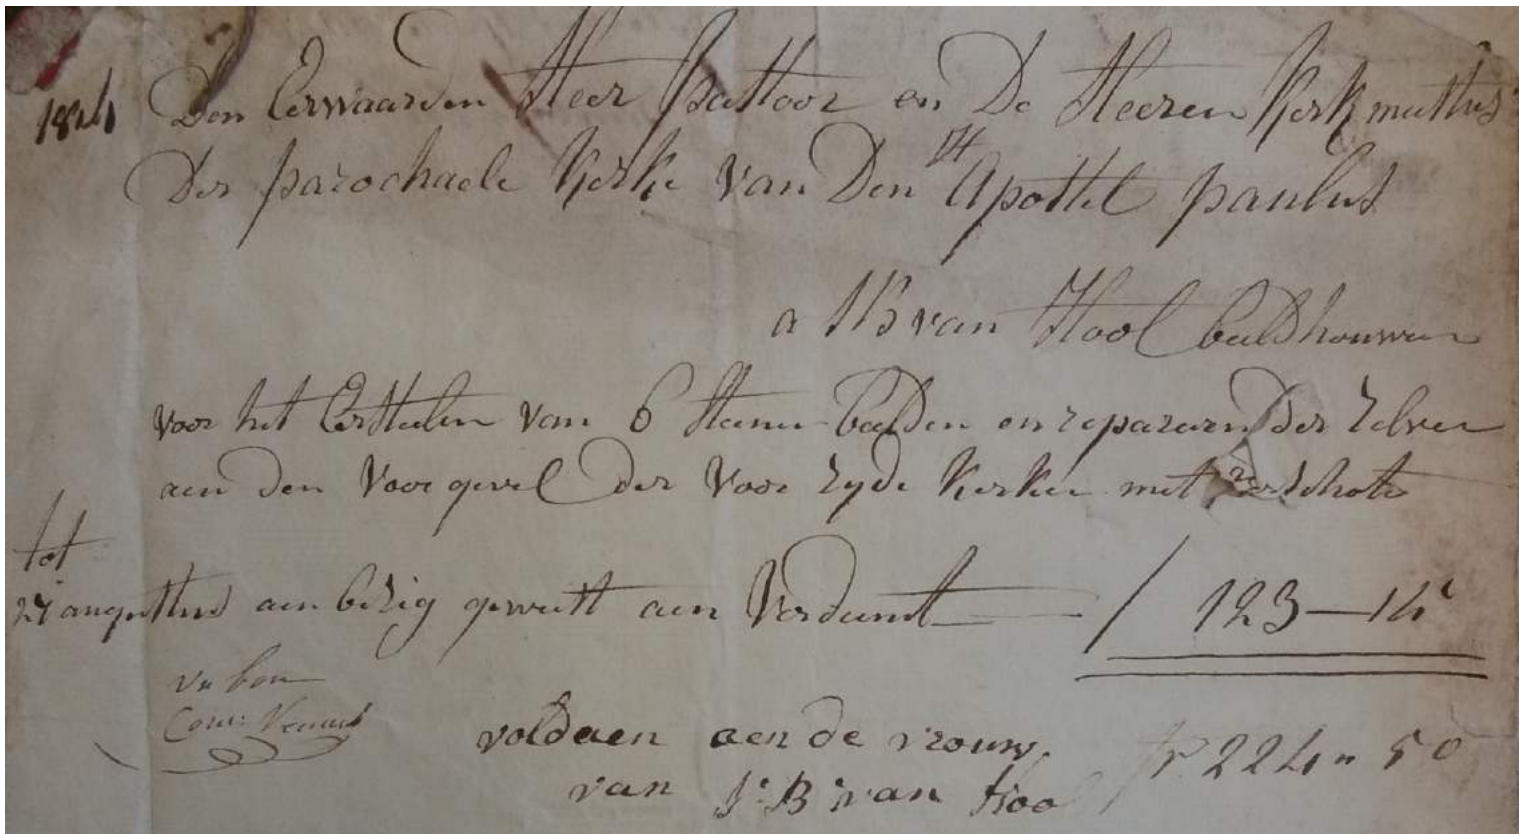 1824 Den Eerwaarden Heer Pastoor en De Heeren Kerk mesters
Der parochaele Kerke van Den St Apostel paulus
a JB van Hool beeldhouwer
voor het herstellen van 6 steene beelden en repareren Der zelven
aen den Voor gevel Der Voor zyde Kerken met
tot
27 augustus aen bezig geweest aen Verdient / 123—14
vu bon
voldaen aen de vrouw fr 224 " 50
van J: B van Hool